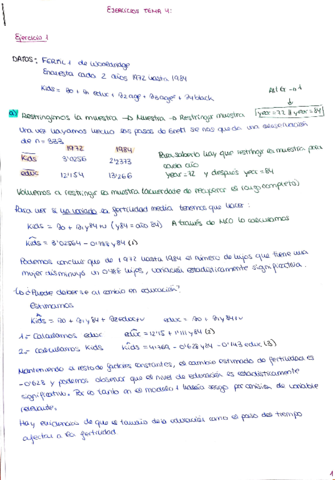 EJERCICIOS TEMA 4:
Ejercicio 1
DATOS: FERTIL1 de Wooldridge
Encuesta cada 2 años 1972 hasta 1984
Kids = β0 + β1 educ + β2 age + β3 age² + β4 black
a) Restringimos la muestra → Muestra → Restringir muestra
year = 72 || year = 84
Una vez hayamos hecho los pasos de Gretl se nos queda una observación
de n = 333
1972 1984
Kids 3'0256 2'2373
educ 12'154 13'266
Para saberlo hay que restringir la muestra para
cada año
year = 72 y después year = 84
Volvemos a restringir la muestra (acuérdate de recuperar el rango completo)
Para ver si ha variado la fertilidad media, tenemos que hacer:
Kids = β0 + β1 y84 + u (y84 = año 84) A través de MCO lo calculamos
Podemos concluir que de 1972 hasta 1984 el número de hijos que tiene una
mujer disminuyó un hijos, variación estadísticamente significativa.
b) ¿Puede deberse al cambio en educación?
Estimamos
Kids = β0 + β1 y84 + β2 educ + u educ = β0 + β1 y84 + v
1= Calculamos educ
2= Calculamos Kids
Manteniendo el resto de factores constantes, el cambio estimado de fertilidad es
y podemos observar que el nivel de educación es estadísticamente
significativo. Por lo tanto en el modelo 1 había sesgo por omisión de variable
relevante.
Hay evidencia de que el tamaño de la educación como el paso del tiempo
afectan a la fertilidad.
1